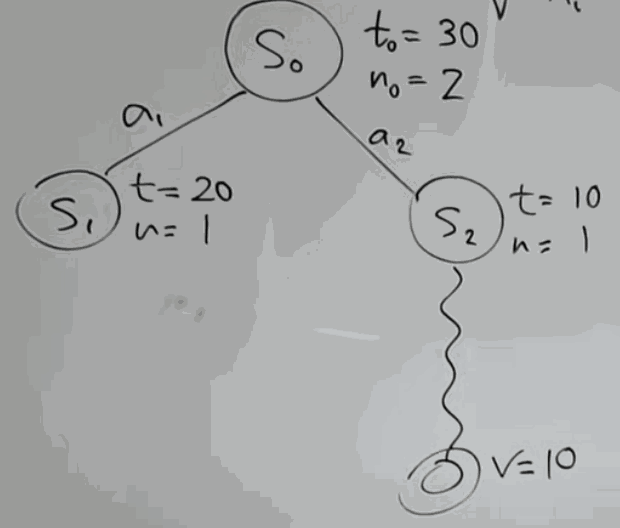 S₀
t₀ = 30
n₀ = 2
a₁
a₂
S₁
t = 20
n = 1
S₂
t = 10
n = 1
V = 10